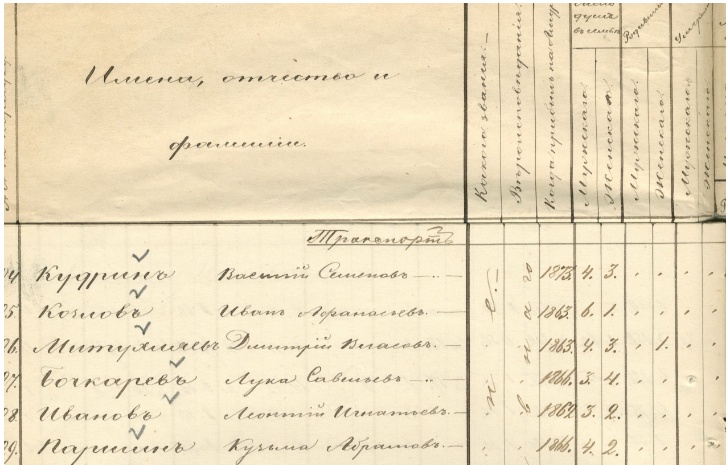 Имена, отчество и
фамилии.
Какого званія.
Вѣроисповѣданія.
Когда прибылъ на
Мужскаго.
Женскаго.
Мужскаго.
Женскаго.
Мужскаго.
Женскаго
Транспортъ
04 Кудринъ Василій Семеновъ 1873. 4. 3.
05. Козловъ Иванъ Афанасьевъ. 1863. 6. 1.
06. Митухляевъ Дмитрій Власовъ. 1863. 4. 3. 1.
07. Бочкаревъ Лука Савельевъ 1866. 3. 4.
08. Ивановъ Леонтій Игнатьевъ. 1862 3. 2.
09. Паршинъ Кузьма Абрамовъ. 1866. 4. 2.